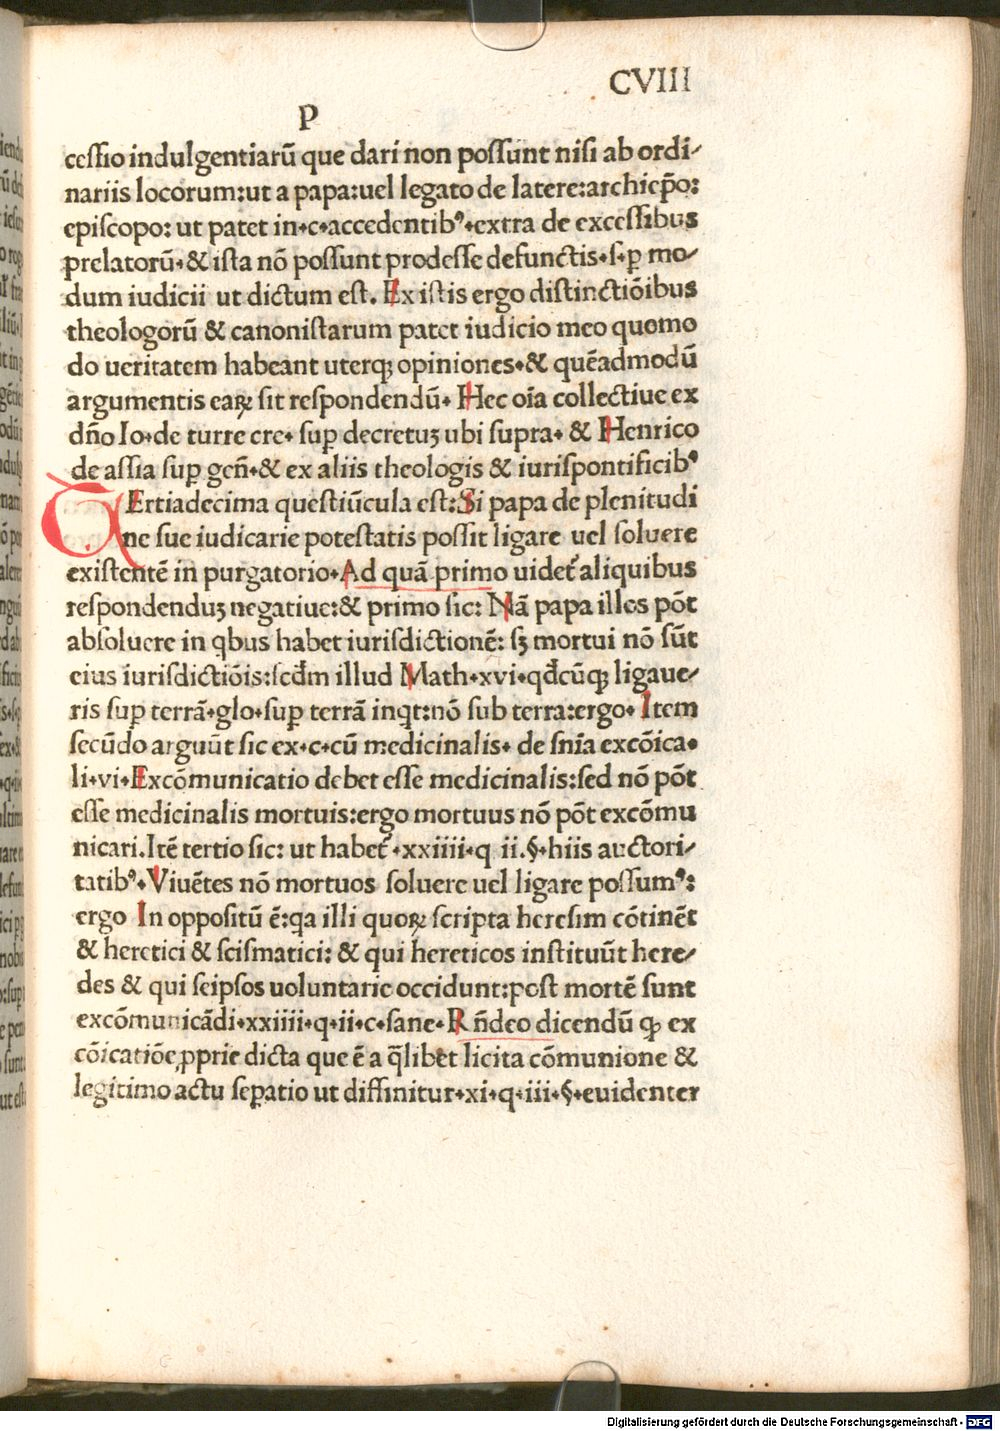 CVIII
P
cessio indulgentiarū que dari non possunt nisi ab ordi⸗
nariis locorum:ut a papa:uel legato de latere:archiep̄o:
episcopo: ut patet in·c·accedentibꝰ·extra de excessibus
prelatorū·& ista nō possunt prodesse defunctis·s·ꝑ mo⸗
dum iudicii ut dictum est. Ex istis ergo distinctiōibus
theologorū & canonistarum patet iudicio meo quomo
do ueritatem habeant uterqꝫ opiniones·& quēadmodū
argumentis eaꝝ sit respondendū· Hec oīa collectiue ex
dn̄o Io·de turre cre· suꝑ decretuꝫ ubi supra· & Henrico
de assia suꝑ gen̄·& ex aliis theologis & iurispontificibꝰ
TErtiadecima questiūcula est:Si papa de plenitudi
ne sue iudicarie potestatis possit ligare uel soluere
existentē in purgatorio·Ad quā primo uidet᷑ aliquibus
respondenduꝫ negatiue:& primo sic: Nā papa illos pōt
absoluere in qbus habet iurisdictionē: sꝫ mortui nō sūt
eius iurisdictiōis:scd̄m illud Math·xvi·qd̄cūqꝫ ligaue⸗
ris suꝑ terrā·glo·suꝑ terrā inqt:nō sub terra:ergo· Item
secūdo arguūt sic ex·c·cū medicinalis· de sn̄ia excōica·
li·vi·Excōmunicatio debet esse medicinalis:sed nō pōt
esse medicinalis mortuis:ergo mortuus nō pōt excōmu
nicari.Itē tertio sic: ut habet᷑·xxiiii·q ii.§·hiis auctori⸗
tatibꝰ·Viuētes nō mortuos soluere uel ligare possumꝰ:
ergo In oppositū ē:qa illi quoꝝ scripta heresim cōtinēt
& heretici & scismatici: & qui hereticos instituūt here⸗
des & qui seipsos uoluntarie occidunt:post mortē sunt
excōmunicādi·xxiiii·q·ii·c·sane·Rn̄deo dicendū ꝙ ex
cōicatiōe ꝓprie dicta que ē a q̄libet licita cōmunione &
legitimo actu seꝑatio ut diffinitur·xi·q·iii·§·euidenter
Digitalisierung gefördert durch die Deutsche Forschungsgemeinschaft - DFG